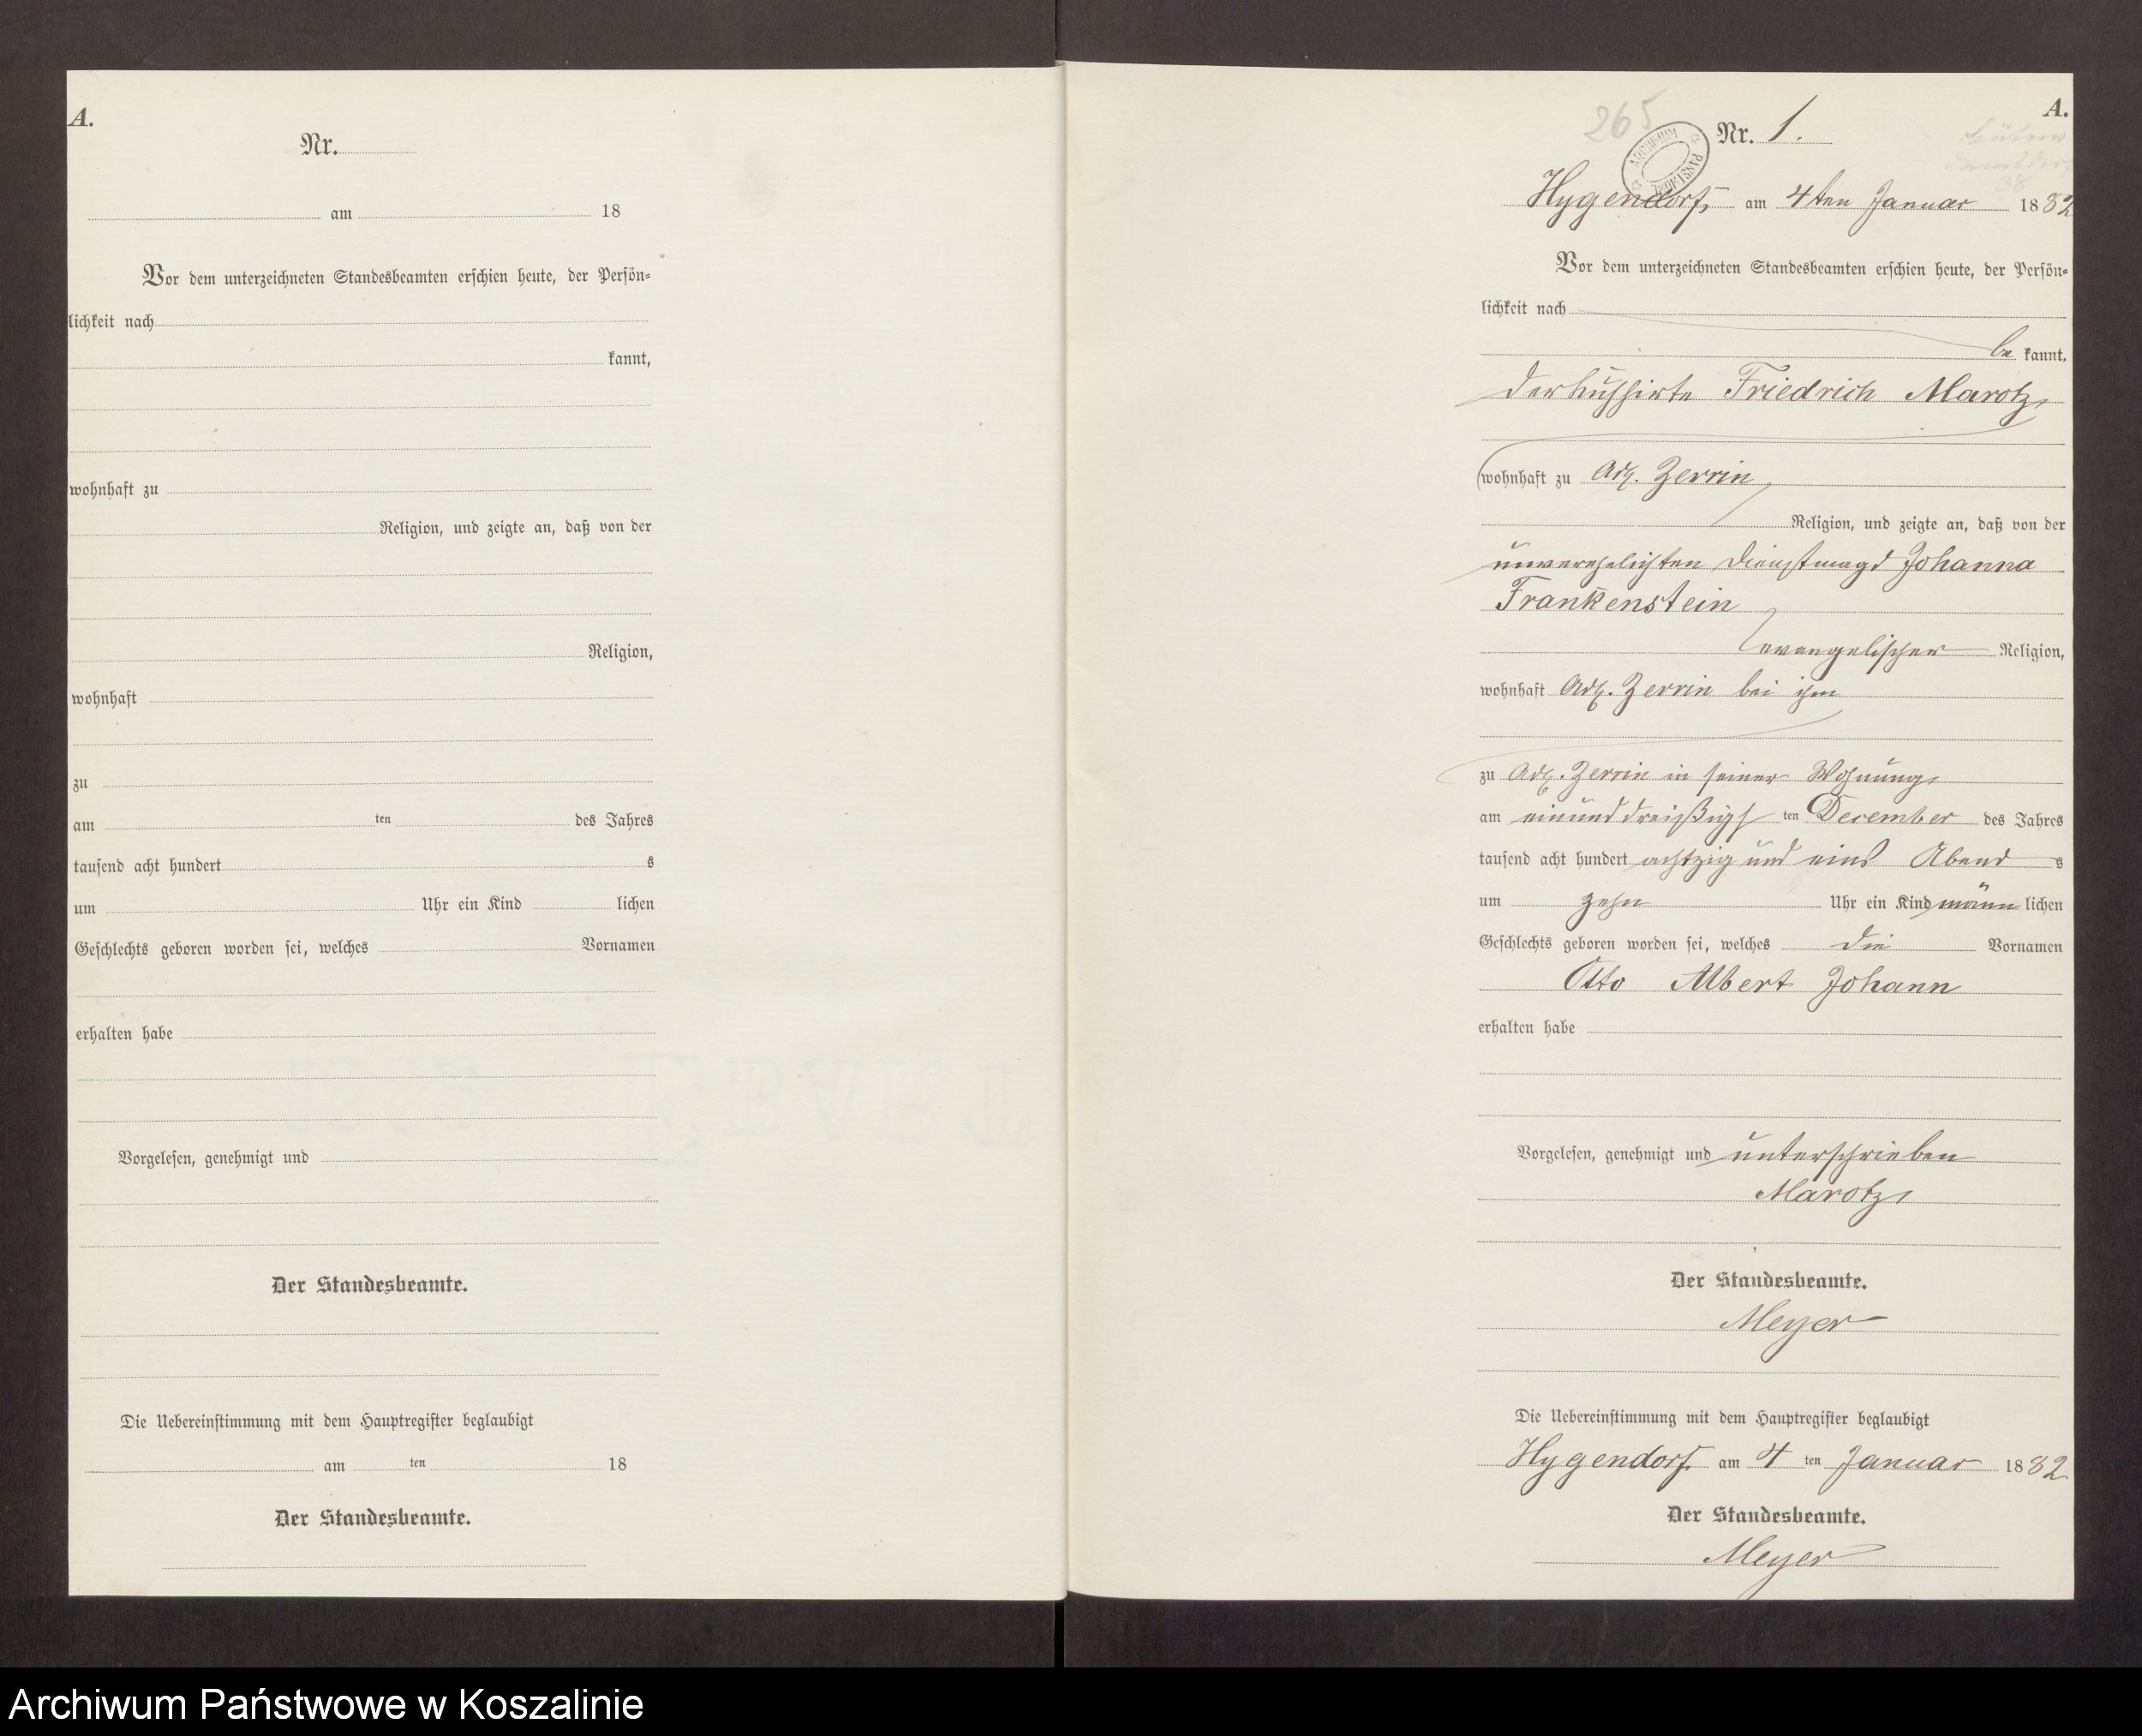 A.
Nr.
am 18
Vor dem unterzeichneten Standesbeamten erschien heute, der Persön-
lichkeit nach
kannt,
wohnhaft zu
Religion, und zeigte an, daß von der
Religion,
wohnhaft
zu
am ten des Jahres
tausend acht hundert s
um Uhr ein Kind lichen
Geschlechts geboren worden sei, welches Vornamen
erhalten habe
Vorgelesen, genehmigt und
Der Standesbeamte.
Die Uebereinstimmung mit dem Hauptregister beglaubigt
am ten 18
Der Standesbeamte.
A.
265
ARCHIWUM PAŃSTWOWE
Nr. 1.
Hygendorf, am 4ten Januar 1882
Vor dem unterzeichneten Standesbeamten erschien heute, der Persön-
lichkeit nach
be kannt,
der Friedrich Marotz,
wohnhaft zu Adl. Zerrin
Religion, und zeigte an, daß von der
unverehelichten Dienstmagd Johanna
Frankenstein
evangelischer Religion,
wohnhaft Adl. Zerrin bei ihm
zu Adl. Zerrin in seiner Wohnung,
am einunddreißigs ten December des Jahres
tausend acht hundert achtzig und eins Abend s
um zehn Uhr ein Kind männ lichen
Geschlechts geboren worden sei, welches die Vornamen
Otto Albert Johann
erhalten habe
Vorgelesen, genehmigt und unterschrieben
Marotz,
Der Standesbeamte.
Meyer
Die Uebereinstimmung mit dem Hauptregister beglaubigt
Hygendorf am 4 ten Januar 1882
Der Standesbeamte.
Meyer
Archiwum Państwowe w Koszalinie